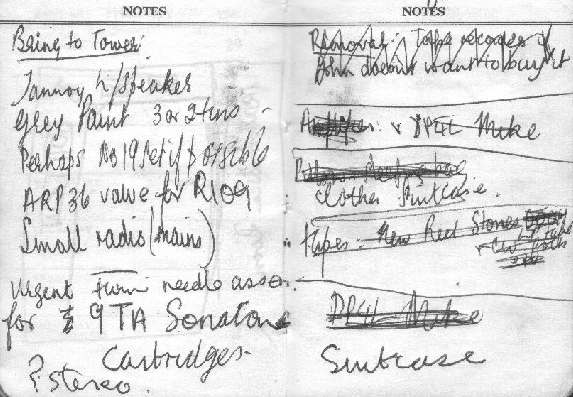 NOTES
Bring to Tower:
Tannoy L/Speaker
Grey Paint 3 or 2 tins
Perhaps No 19 set if
ARP36 valve for R109
Small radio (mains)
Urgent needle assen.
for 9TA Sonatone
Cartridges.
? Stereo.
NOTES
Removal: Tape recorder if
John doesn't want to buy it
& DP4L Mike
Clothes Suitcase.
Tapes: New Red Stones
DP4L Mike
Suitcase